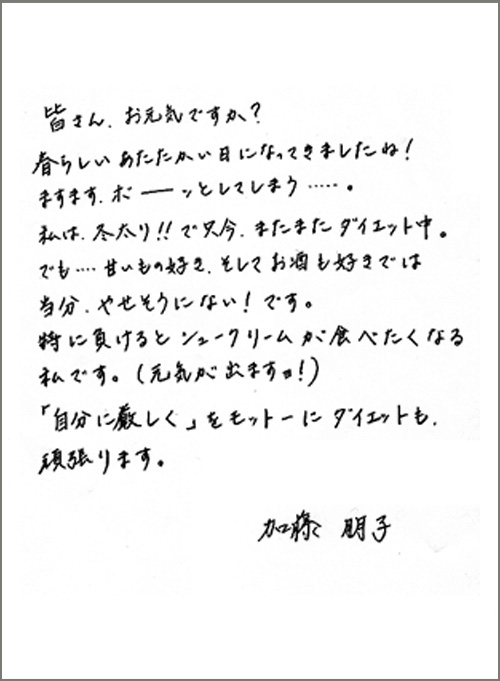 皆さん、お元気ですか?
春らしいあたたかい日になってきましたね!
ますます、ボーーッとしてしまう‥‥‥。
私は、冬太り!!で只今、またまたダイエット中。
でも‥‥甘いもの好き、そしてお酒も好きでは
当分、やせそうにない!です。
特に負けるとシュークリームが食べたくなる
私です。(元気が出ますョ!)
「自分に厳しく」をモットーにダイエットも、
頑張ります。
加藤 朋子